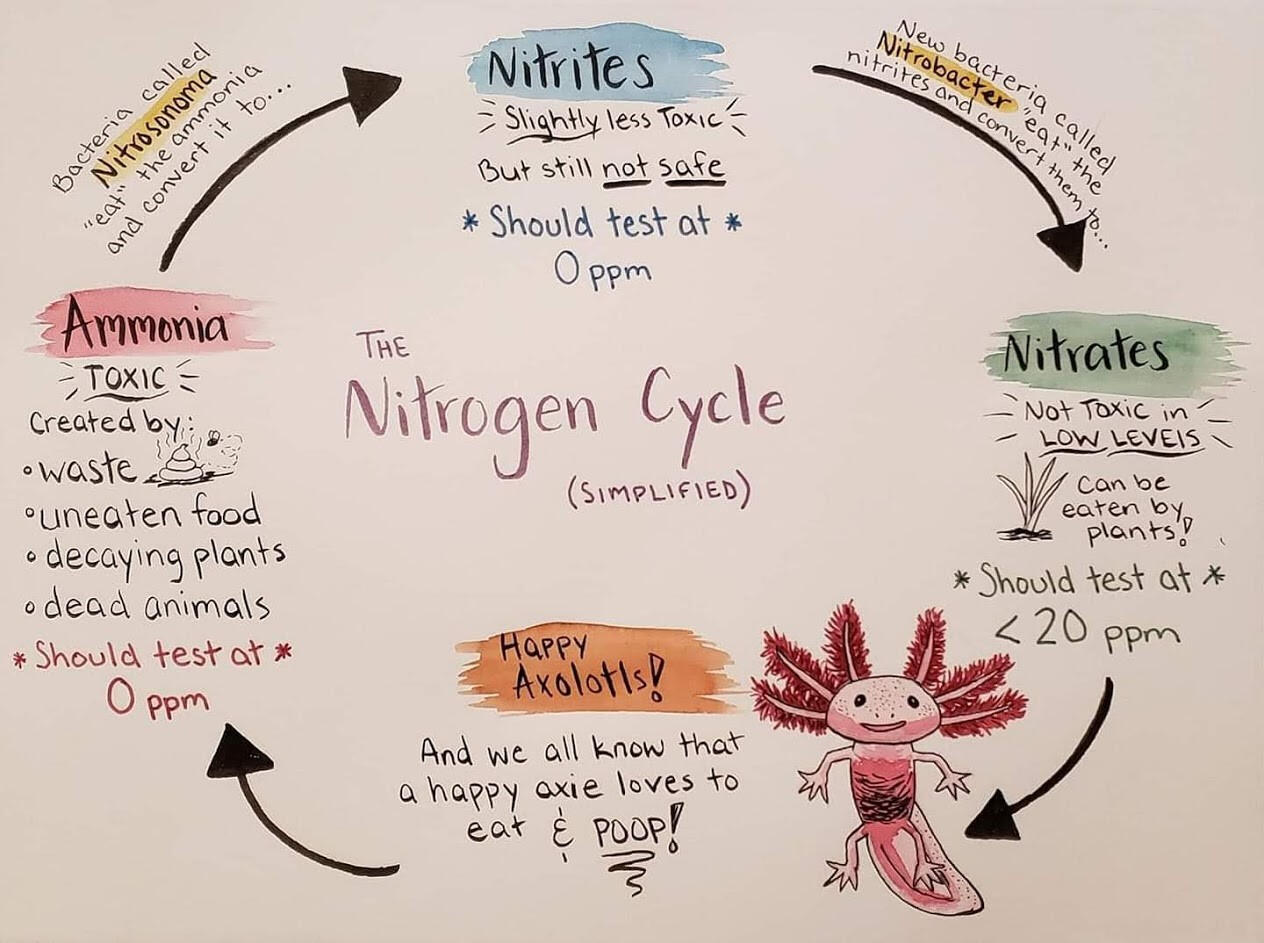 The
Nitrogen Cycle
(Simplified)
Ammonia
Toxic
Created by:
• waste
• uneaten food
• decaying plants
• dead animals
* Should test at *
0 ppm
Bacteria called
Nitrosonoma
"eat" the ammonia
and convert it to...
Nitrites
Slightly less Toxic
But still not safe
* Should test at *
0 ppm
New bacteria called
Nitrobacter "eat" the
nitrites and convert them to...
Nitrates
Not Toxic in
LOW LEVELS
Can be
eaten by
plants!
* Should test at *
< 20 ppm
Happy
Axolotls!
And we all know that
a happy axie loves to
eat & POOP!